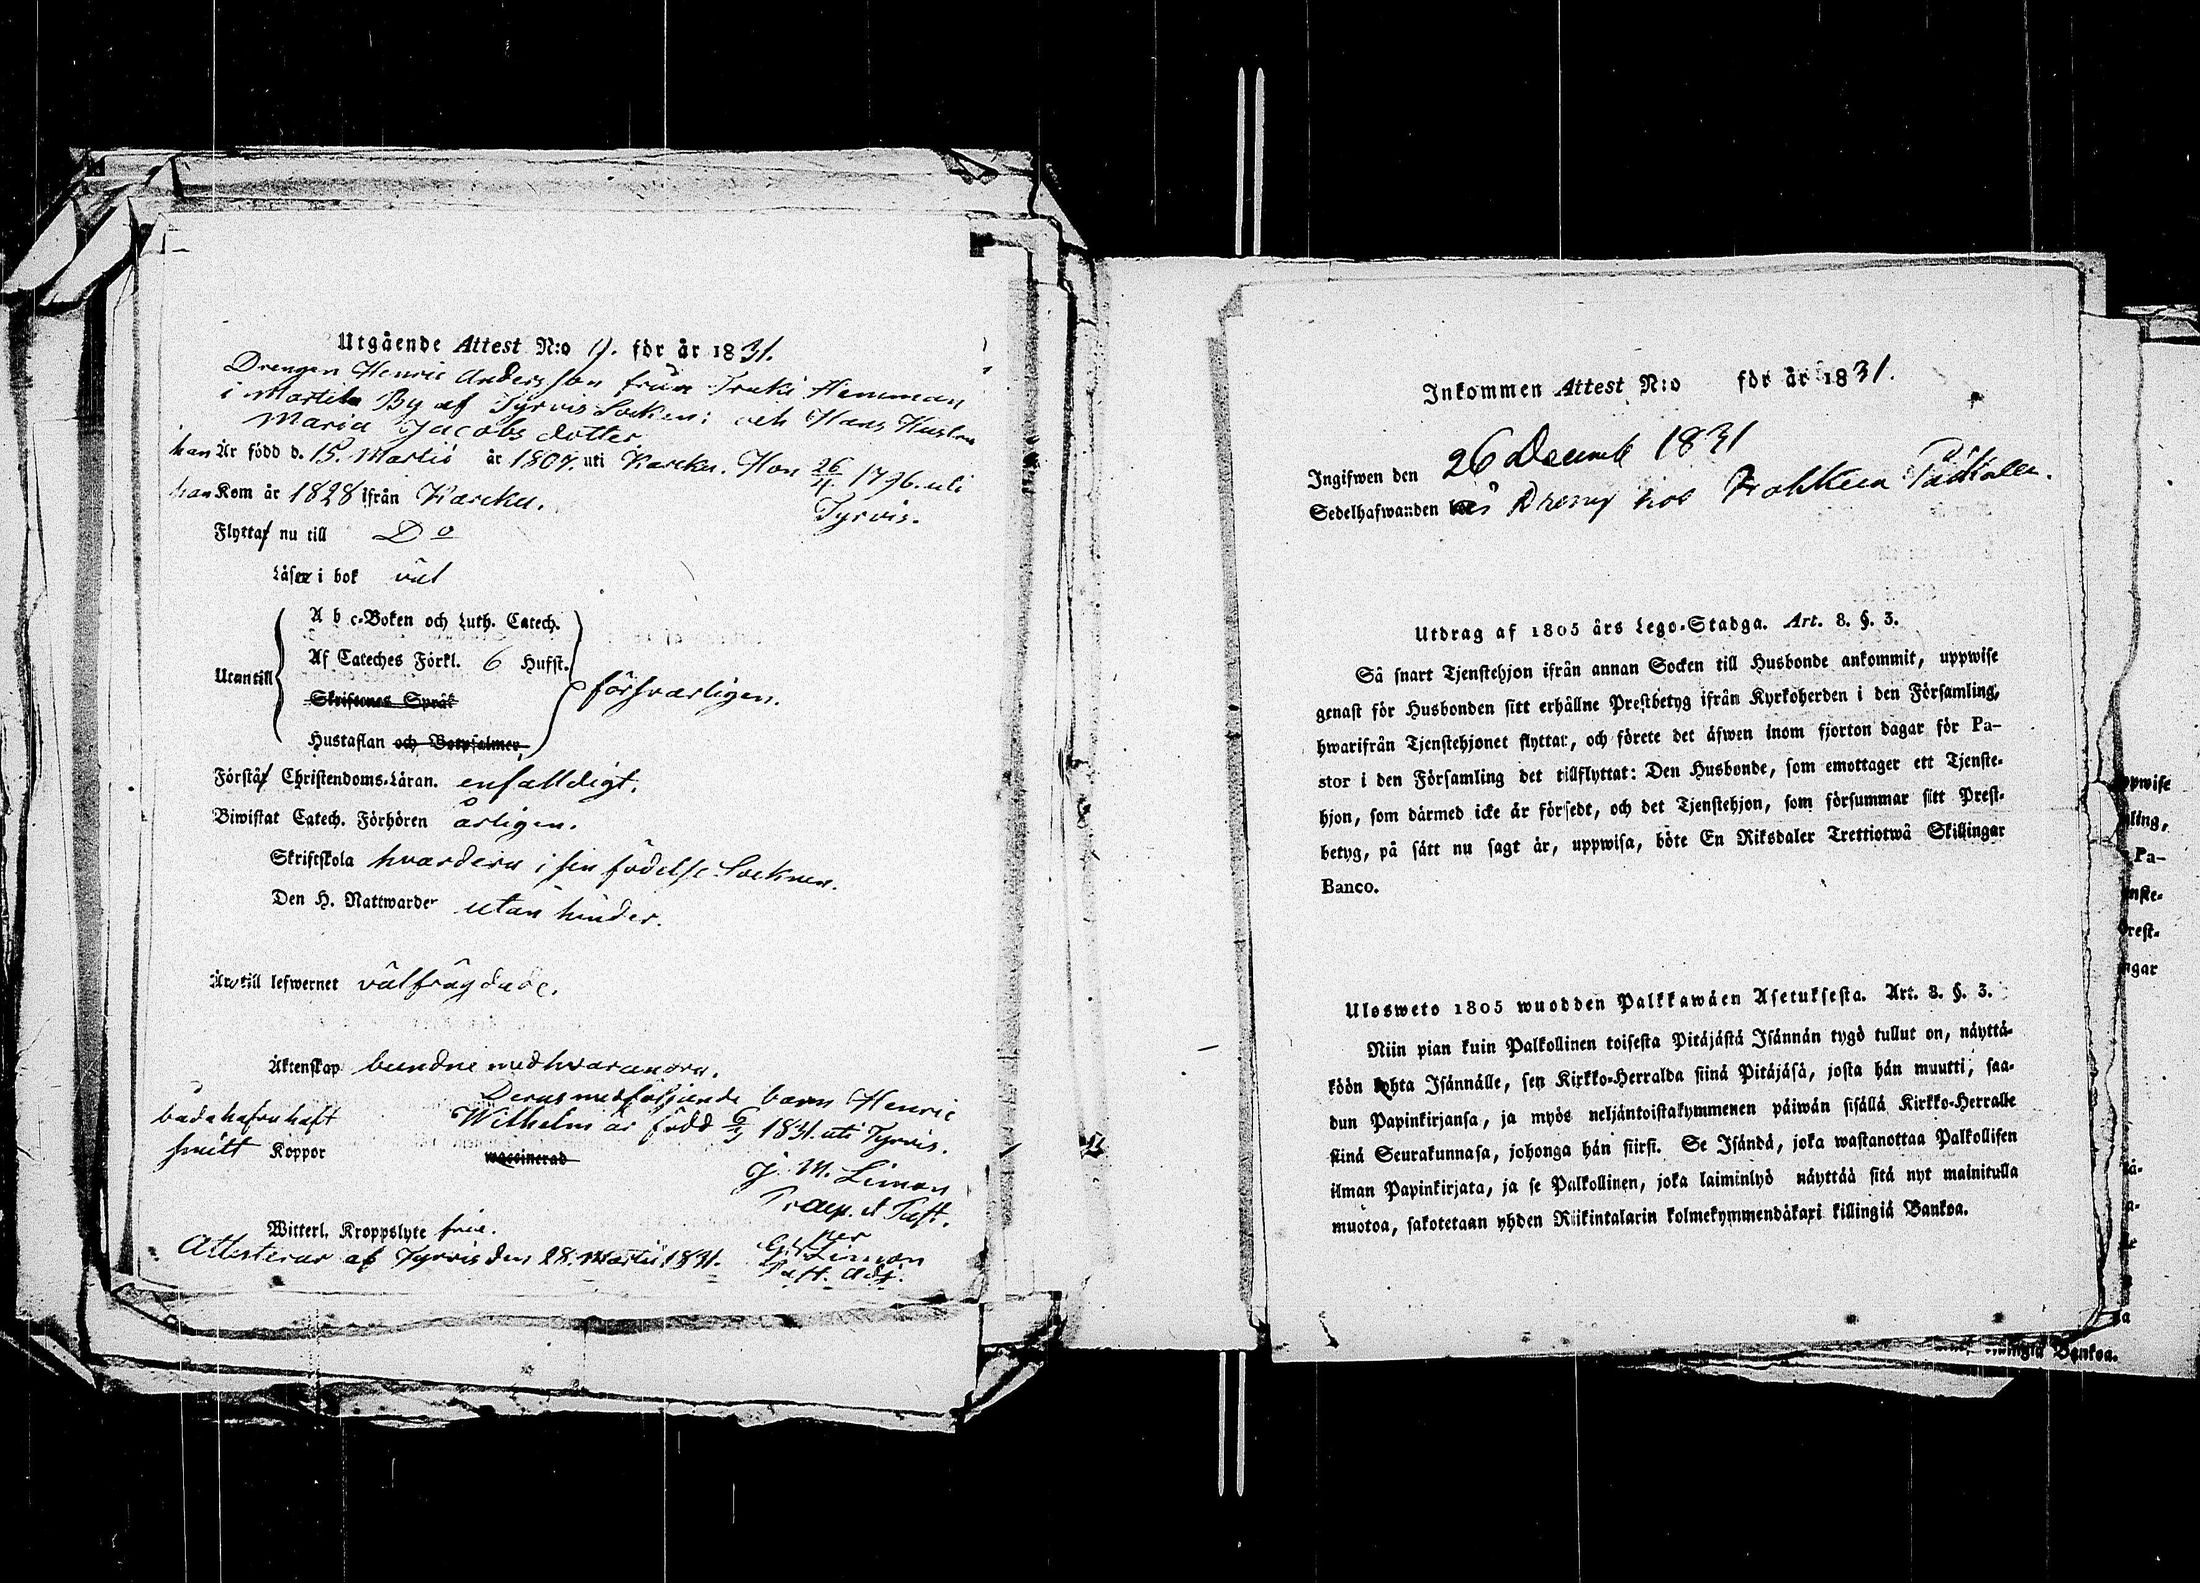 Utgående Attest N:o 9. för år 1831.
Drengen Henric Andersson från Truki Hemman
i Martila By af Tyrvis Socken; och Hans Hustru
Maria Jacobs dotter
han Är född d. 15. Martii år 1807. uti Karcku. Hon 26/4 1796. uti
Tyrvis.
han Kom år 1828 ifrån Karcku.
Flyttaf nu till Do
Läser i bok väl
Utantill
A b c-Boken och Luth. Catech.
Af Cateches Förkl. 6 Hufst.
Skriftenes Språk
Hustaflan och Botpsalmer
försvarligen.
Förstår Christendoms-Läran. enfalldigt.
Biwistat Catech. Förhören årligen.
Skriftskola hvardera i sin födelse Socknen.
Den H. Nattwarder utan hinder.
Äro till lefwernet välfrägdade.
Äktenskap bundne med hvarandra.
Deras medföljande barn Henric
Wilhelm är född 6/3 1831. uti Tyrvis.
båda hafva haft
smitt Koppor waccinerad
J. M. Liman
Præp. et Past.
Witterl. Kroppslyte frie.
Attesterar af Tyrvis den 28. Martii 1831.
per
Liman
Past. Adj.
Inkommen Attest N:o för år 1831.
Ingifwen den 26 Decemb 1831
Sedelhafwanden är Dreng hos
Utdrag af 1805 års Lego-Stadga. Art. 8. §. 3.
Så snart Tjenstehjon ifrån annan Socken till Husbonde ankommit, uppwise
genast för Husbonden sitt erhållne Prestbetyg ifrån Kyrkoherden i den Församling,
hwarifrån Tjenstehjonet flyttat, och förete det äfwen inom fjorton dagar för Pa-
stor i den Församling det tillflyttat: Den Husbonde, som emottager ett Tjenste-
hjon, som därmed icke är försedt, och det Tjenstehjon, som försummar sitt Prest-
betyg, på sätt nu sagt är, uppwisa, böte En Riksdaler Trettiotwå Skillingar
Banco.
Ulosweto 1805 wuodden Palkkawäen Asetuksesta. Art. 8. §. 3.
Niin pian kuin Palkollinen toisesta Pitäjästä Isännän tygö tullut on, näyttä-
köön kohta Isännälle, sen Kirkko-Herralda siinä Pitäjäsä, josta hän muutti, saa-
dun Papinkirjansa, ja myös neljäntoistakymmenen päiwän sisällä Kirkko-Herralle
siinä Seurakunnasa, johonga hän siirsi. Se Isändä, joka wastanottaa Palkollisen
ilman Papinkirjata, ja se Palkollinen, joka laiminlyö näyttää sitä nyt mainitulla
muotoa, sakotetaan yhden Riikintalarin kolmekymmendäkaxi killingiä Bankoa.